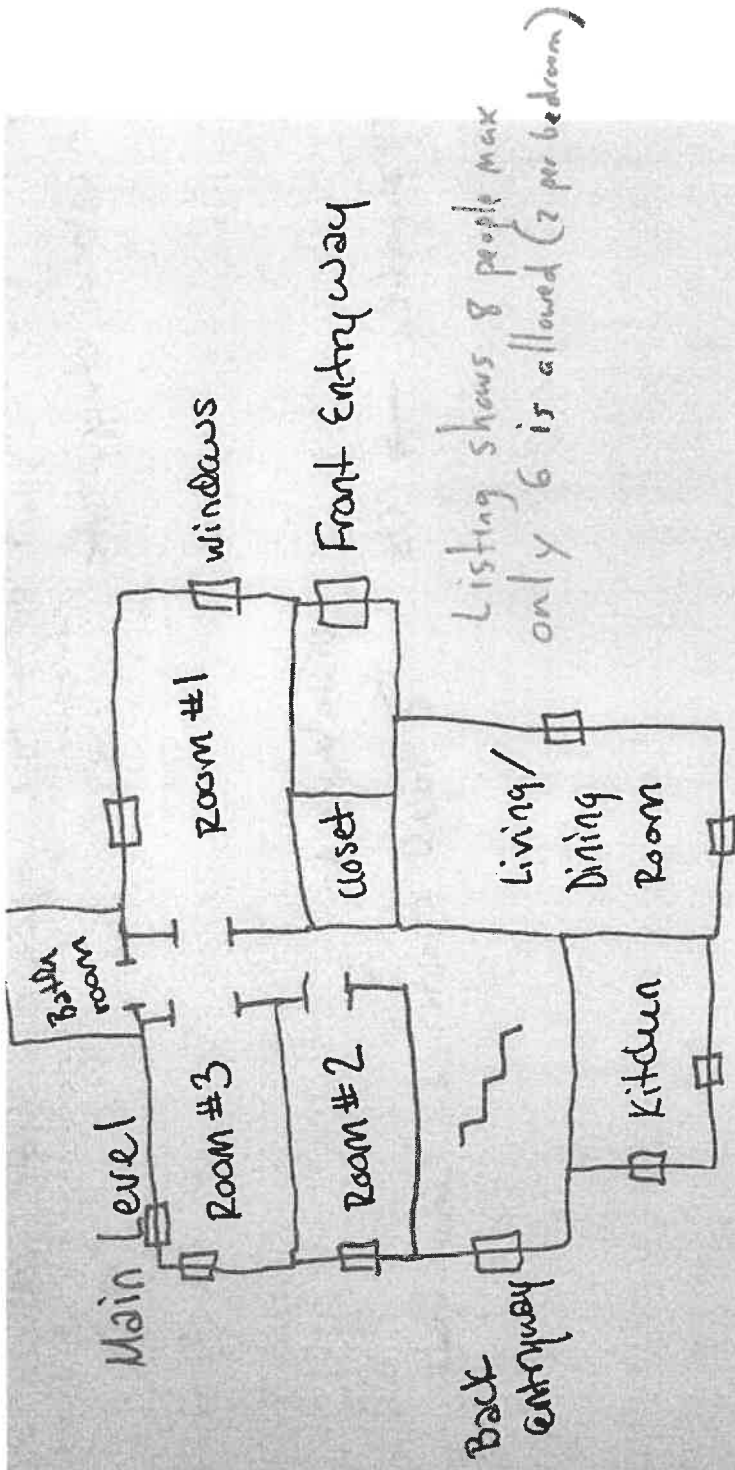 Main Level
Bath
room
Room #3
Room #1
windows
Room #2
Closet
Front Entryway
Back
entryway
Kitchen
Living/
Dining
Room
Listing shows 8 people max
only 6 is allowed (2 per bedroom)